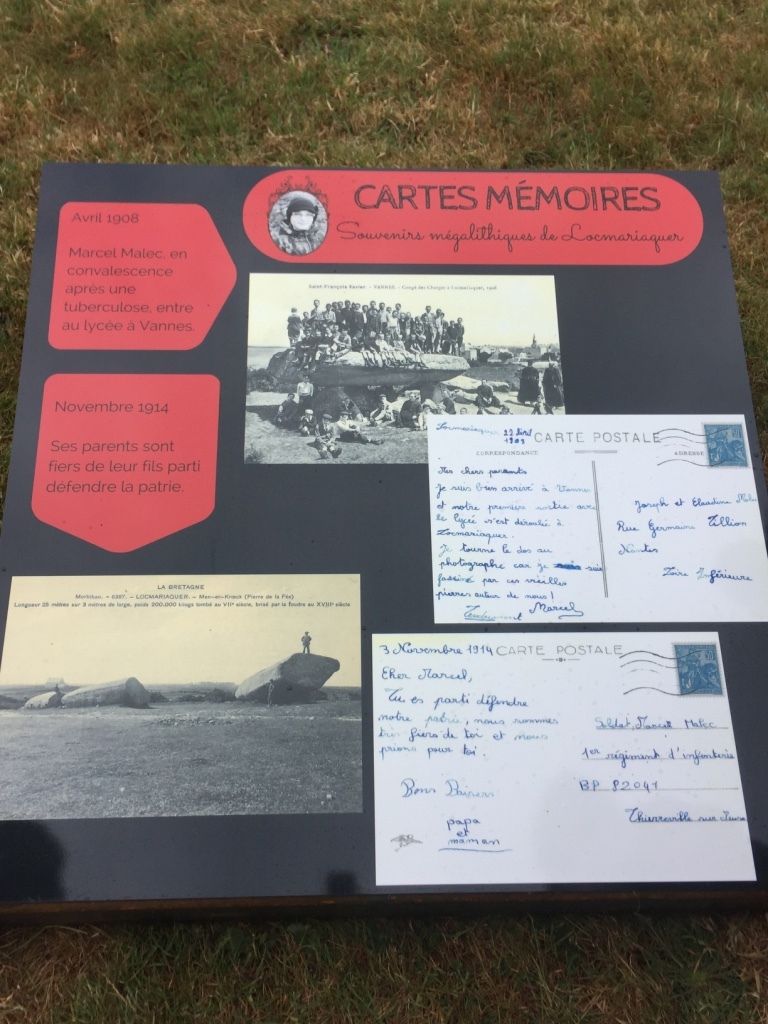 CARTES MÉMOIRES
Souvenirs mégalithiques de Locmariaquer
Avril 1908
Marcel Malec, en
convalescence
après une
tuberculose, entre
au lycée à Vannes.
Saint-François Xavier. - VANNES. - Congé des Charges à Locmariaquer, 1908
Novembre 1914
Ses parents sont
fiers de leur fils parti
défendre la patrie.
Locmariaquer 22 Avril
CARTE POSTALE
CORRESPONDANCE
ADRESSE
Mes chers parents
Je suis bien arrivé à Vannes
et notre première sortie avec
le lycée s'est déroulée à
Locmariaquer.
Je tourne le dos au
photographe car je suis
fasciné par ces vieilles
pierres autour de nous !
Tendrement Marcel
Joseph et Claudine
Rue Germaine Tillion
Nantes
Loire Inférieure
LA BRETAGNE
Morbihan. - 6387. - LOCMARIAQUER. - Men-er-Hrœck (Pierre de la Fée)
Longueur 25 mètres sur 3 mètres de large, poids 200.000 kilogs tombé au VIIe siècle, brisé par la foudre au XVIIIe siècle
3 Novembre 1914 CARTE POSTALE
Cher Marcel,
Tu es parti défendre
notre patrie, nous sommes
très fiers de toi et nous
prions pour toi.
Bons Baisers
papa
et
maman
Soldat Marcel Malec
1er régiment d'infanterie
BP 82041
Thierville sur